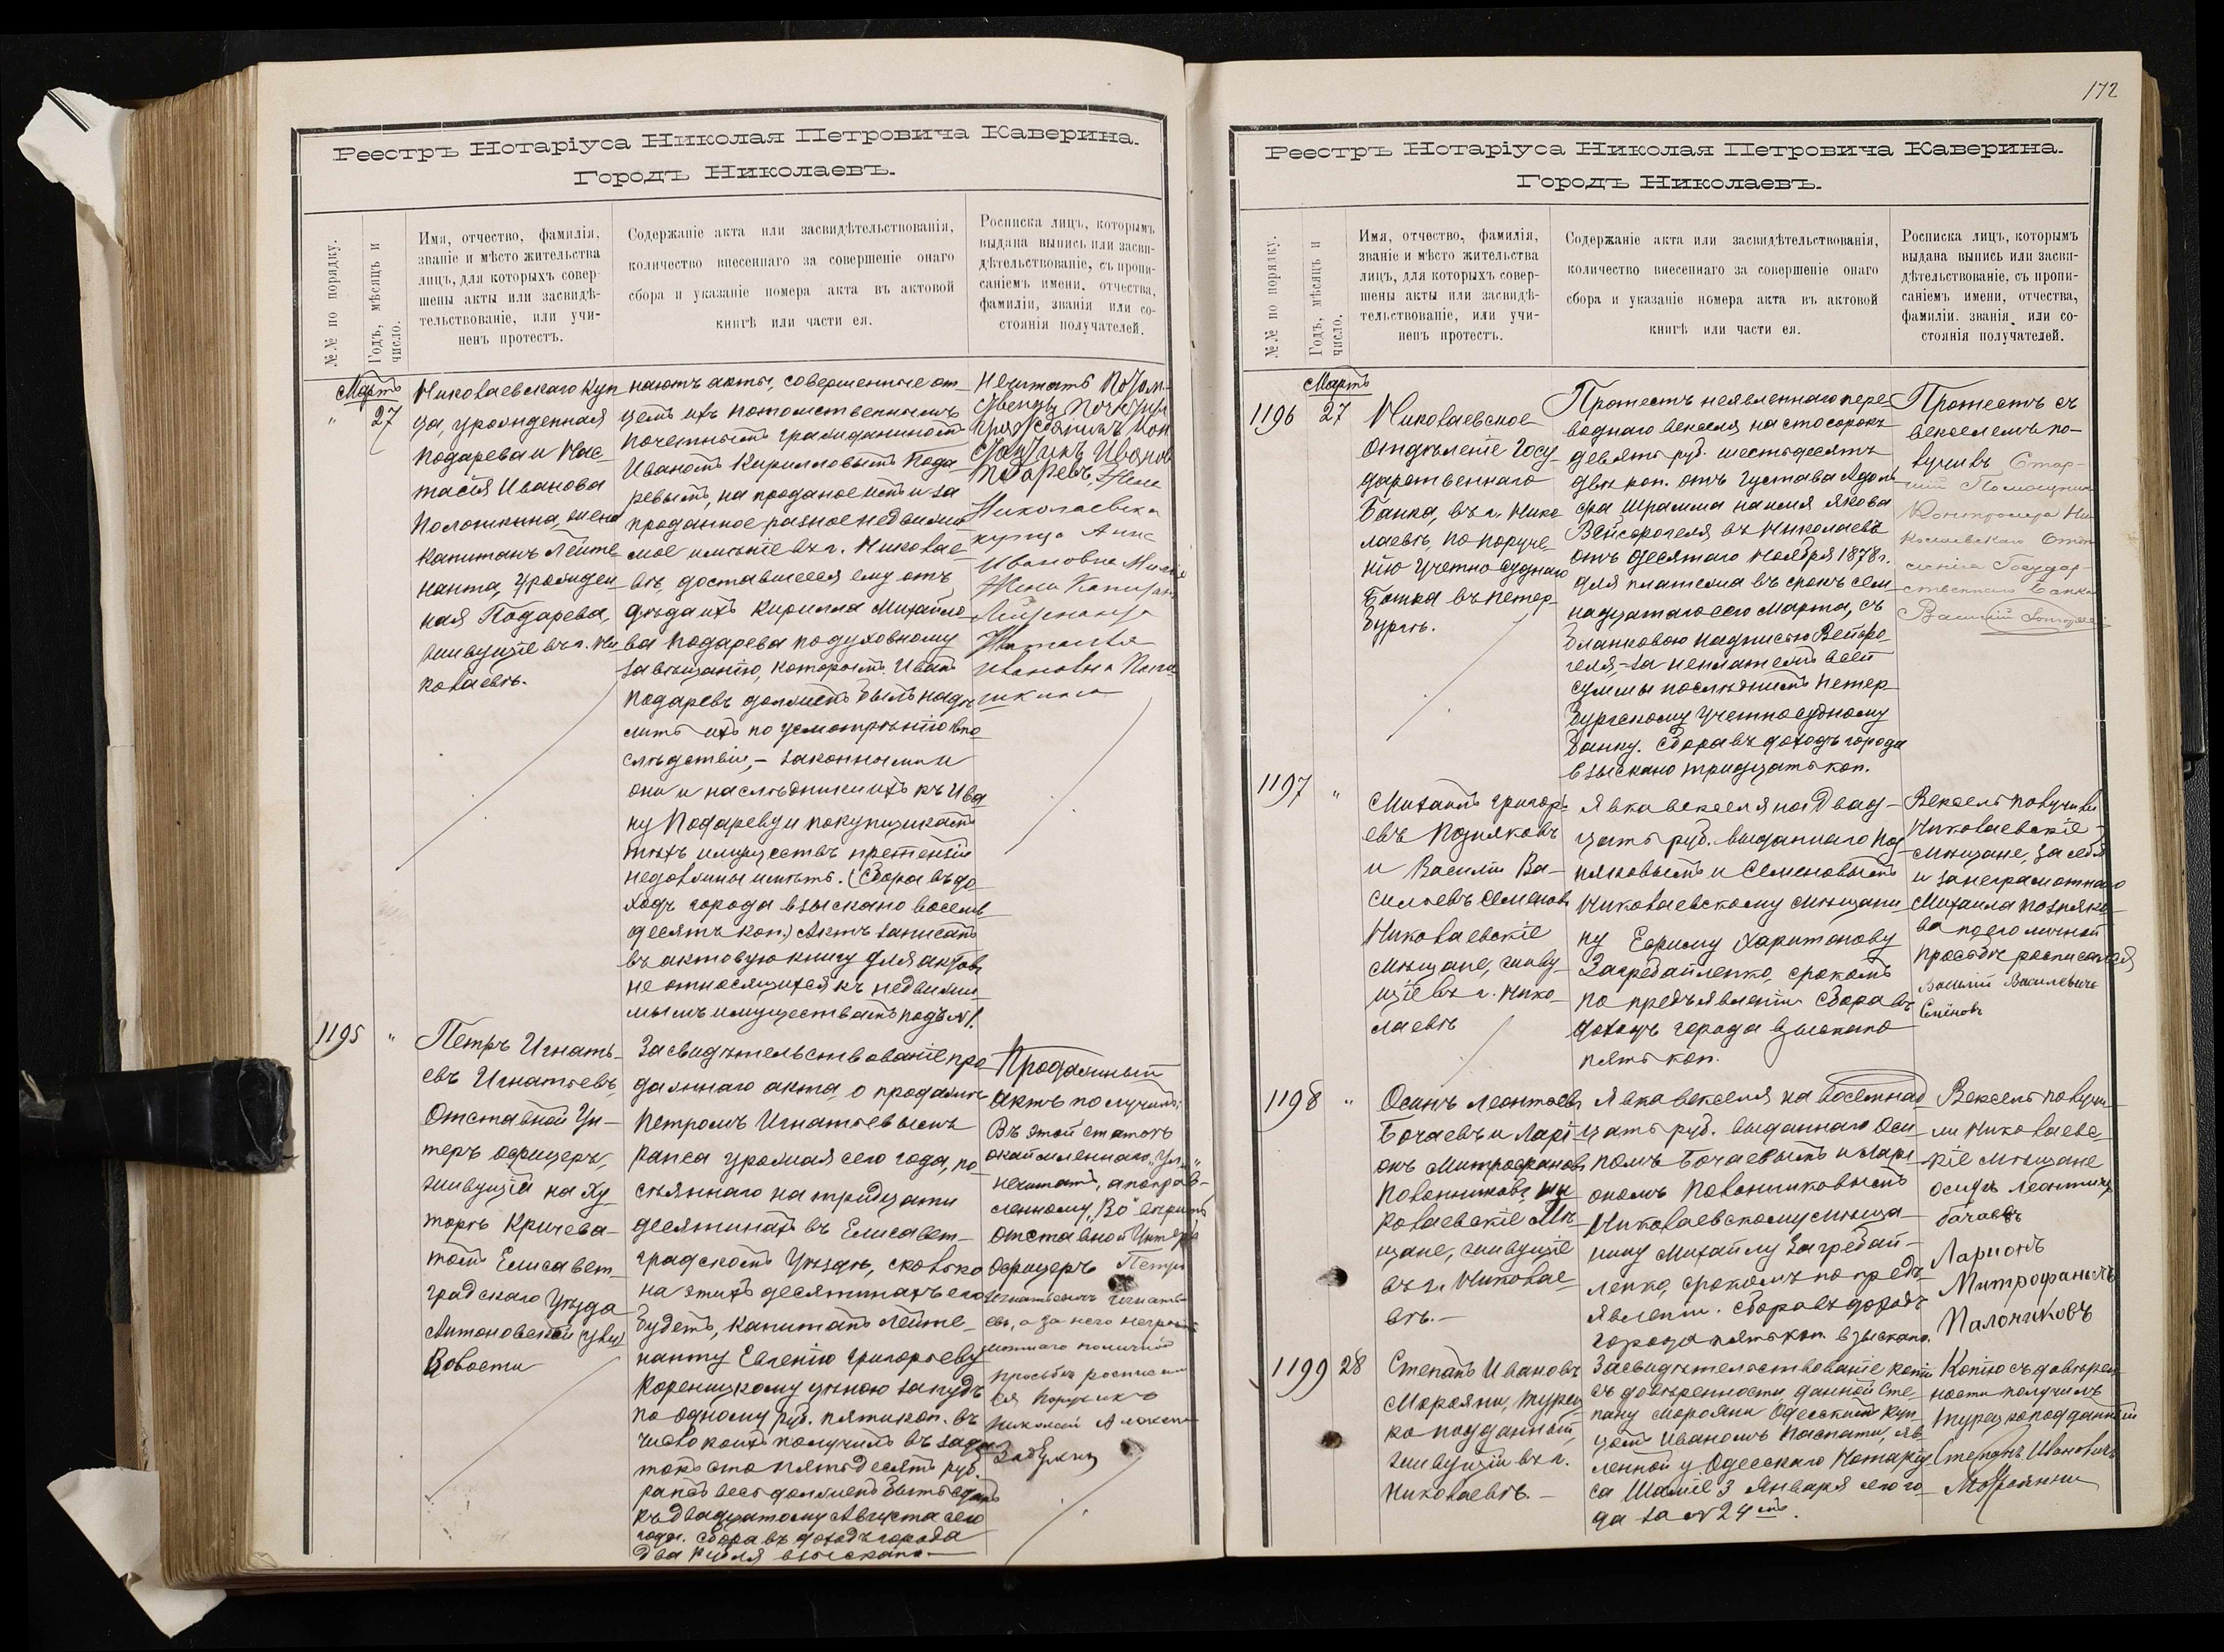 Реестръ Нотаріуса Николая Петровича Каверина.
Городъ Николаевъ.
№№ по порядку.
Годъ, мѣсяцъ и
число.
Имя, отчество, фамилія,
званіе и мѣсто жительства
лицъ, для которыхъ совер-
шены акты или засвидѣ-
тельствованіе, или учи-
ненъ протестъ.
Содержаніе акта или засвидѣтельствованія,
количество внесеннаго за совершеніе онаго
сбора и указаніе номера акта въ актовой
книгѣ или части ея.
Росписка лицъ, которымъ
выдана выпись или засви-
дѣтельствованіе, съ пропи-
саніемъ имени, отчества,
фамиліи, званія или со-
стоянія получателей.
Мартъ
" 27
Николаевскаго куп
ца, урожденная
Подарева и Нас-
тасія Иванова
Полошкина, жена
Капитанъ Лейте-
нанта, урожден
ная Подарева,
живущіе въ г. Ни
колаевѣ.
наютъ акты, совершенные от-
цемъ ихъ потомственнымъ
почетнымъ гражданиномъ
Иваномъ Кирилловымъ Пода-
ревымъ, на проданое имъ и за
проданное разное недвижи-
мое имѣніе въ г. Николае-
вѣ, доставшееся ему отъ
дѣда ихъ Кирилла Михайло-
ва Подарева по духовному
завѣщанію, которымъ Иванъ
Подаревъ долженъ былъ надѣ-
лить ихъ по усмотрѣнію впо-
слѣдствіи, – законными и
они и наслѣдники ихъ къ Ива
ну Подареву и покупщикамъ
тѣхъ имуществъ претензіи
недолжны имѣть. (Сбора въ до-
ходъ города взыскано восемь-
десятъ коп.) Актъ записанъ
въ актовую книгу для актовъ
не относящихся къ недвижи-
мымъ имуществамъ подъ №1.
Нечитать Потом-
Константинъ Ивановъ
Подаревъ, Жена
Николаевска
купца Анна
Ивановна
Жена Капитан
Лейтенанта
Настасія
Ивановна Поло
шкина
1195 "
Петръ Игнать-
евъ Игнатьевъ,
Отставной Ун-
теръ офицеръ,
живущій на Ху-
торѣ Кричева-
томъ Елисавет-
градскаго Уѣзда
Антоновской (уву)
Волости
Засвидѣтельствованіе про-
дажнаго акта, о продажѣ
Петромъ Игнатьевымъ
рапса урожая сего года, по
сѣяннаго на тридцати
десятинахъ въ Елисавет-
градскомъ Уѣздѣ, сколько
на этихъ десятинахъ его
будетъ, Капитанъ Лейте-
нанту Евгенію Григорьеву
Кореницкому цѣною за пудъ
по одному руб. пяти коп. въ
число коихъ получилъ въ зада-
токъ сто пятьдесятъ руб.
рапсъ весь долженъ быть сданъ
къ двадцатому Августа сего
года. Сбора въ доходъ города
два рубля взыскано.
Продажный
актъ получилъ;
Въ этой статьѣ
окаймленнаго „Уву"
нечитать, а поправ-
ленному „Во" вѣрить
отставной Унтеръ
Офицеръ Петръ
Игнатьевичъ Игнать-
евъ, а за него неграмо-
тнаго по личной
просьбѣ росписал
ся Поручикъ
Николай Алексѣ
172
Реестръ Нотаріуса Николая Петровича Каверина.
Городъ Николаевъ.
№№ по порядку.
Годъ, мѣсяцъ и
число.
Имя, отчество, фамилія,
званіе и мѣсто жительства
лицъ, для которыхъ совер-
шены акты или засвидѣ-
тельствованіе, или учи-
ненъ протестъ.
Содержаніе акта или засвидѣтельствованія,
количество внесеннаго за совершеніе онаго
сбора и указаніе номера акта въ актовой
книгѣ или части ея.
Росписка лицъ, которымъ
выдана выпись или засви-
дѣтельствованіе, съ пропи-
саніемъ имени, отчества,
фамиліи, званія или со-
стоянія получателей.
Мартъ
1196 27
Николаевское
Отдѣленіе Госу-
дарственнаго
Банка, въ г. Нико
лаевѣ, по поруче-
нію Учетно ссуднаго
Банка въ Петер-
бургѣ.
Протестъ неявленнаго пере-
воднаго векселя на сто сорокъ
девять руб. шестьдесятъ
двѣ коп. отъ Густава Адоль
фа Шрамма на имя Якова
Вейсфогеля въ Николаевѣ
отъ десятаго Ноября 1878 г.
для платежа въ срокъ сем-
надцатаго сего Марта, съ
бланковою надписью Вейсфо-
геля, – за неплатежъ всей
суммы послѣднимъ Петер-
бургскому Учетно ссудному
Банку. Сбора въ доходъ города
взыскано тридцать коп.
Протестъ съ
векселемъ по-
лучилъ Стар-
шій Помощник
Контролера Ни-
колаевскаго Отдѣ
ленія Государ-
ственнаго Банка
Василій
1197 "
Михаилъ Григорь-
евъ Позняковъ
и Василій Ва-
сильевъ Семеновъ
Николаевскіе
мѣщане, живу-
щіе въ г. Нико-
лаевѣ
Явка векселя на Двад-
цать руб. выданнаго Поз-
няковымъ и Семеновымъ
Николаевскому мѣщани-
ну Ефиму Харитонову
Загребайленко, срокомъ
по предъявленіи. Сбора въ
доходъ города взыскано
пять коп.
Вексель получили
Николаевскіе
мѣщане, за себя
и за неграмотнаго
Михаила Позняко-
ва по его личной
просьбѣ росписался
Василій Васильевичъ
Семёновъ
1198 "
Осипъ Леонтьевъ
Бочаевъ и Ларі-
онъ Митрофановъ
Полонниковъ, Ни
колаевскіе Мѣ-
щане, живущіе
въ г. Николае-
вѣ. –
Явка векселя на Восемнад-
цать руб. выданнаго Оси-
помъ Бочаевымъ и Лари-
ономъ Полонниковымъ
Николаевскому мѣща-
нину Михайлу Загребай-
ленко, срокомъ по предъ-
явленіи. Сбора въ доходъ
города пять коп. взыскано.
Вексель получи-
ли Николаевс-
кіе мѣщане
осипъ Леонтичъ
бачаевъ
Ларионъ
Митрофанычъ
Палончиковъ
1199 28
Степанъ Ивановъ
Марояни, турец
ко подданный,
живущій въ г.
Николаевѣ. –
Засвидѣтельствованіе копіи
съ довѣренности, данной Сте-
пану Марояни Одесскимъ куп-
цомъ Иваномъ Паспати, яв-
ленной у Одесскаго Нотаріу-
са Шаміе 3 Января сего го-
да за №24мъ.
Копію съ довѣрен-
ности получилъ
турецкоподданный
Степанъ Ивановичъ